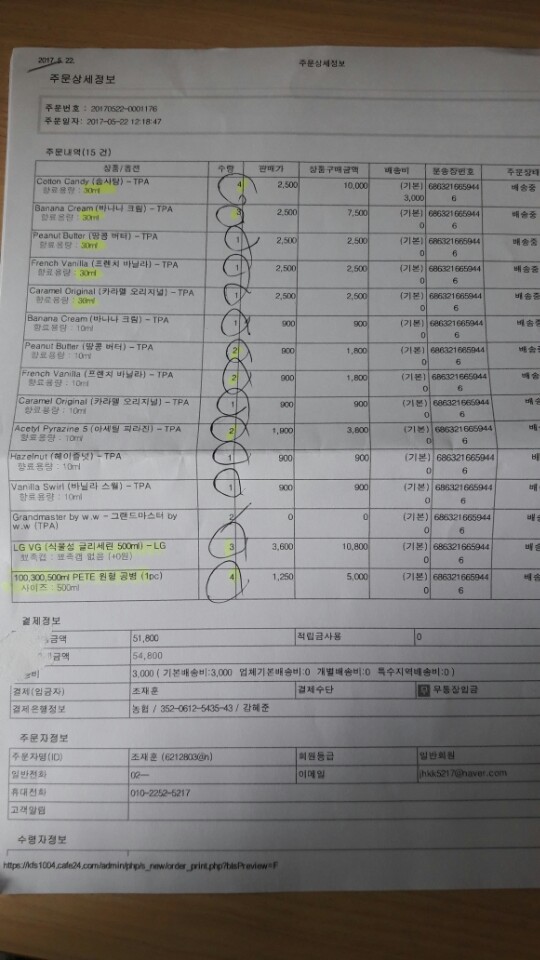 2017. 5. 22.
주문상세정보
주문상세정보
주문번호 : 20170522-0001176
주문일자 : 2017-05-22 12:18:47
주문내역(15 건)
상품/옵션 수량 판매가 상품구매금액 배송비 운송장번호 주문상태
Cotton Candy (솜사탕) - TPA 4 2,500 10,000 (기본) 686321665944 배송중
향료용량 : 30ml 3,000 6
Banana Cream (바나나 크림) - TPA 3 2,500 7,500 (기본) 686321665944 배송중
향료용량 : 30ml 0 6
Peanut Butter (땅콩 버터) - TPA 1 2,500 2,500 (기본) 686321665944 배송중
향료용량 : 30ml 0 6
French Vanilla (프렌치 바닐라) - TPA 1 2,500 2,500 (기본) 686321665944 배송중
향료용량 : 30ml 0 6
Caramel Original (카라멜 오리지널) - TPA 1 2,500 2,500 (기본) 686321665944 배송중
향료용량 : 30ml 0 6
Banana Cream (바나나 크림) - TPA 1 900 900 (기본) 686321665944 배송중
향료용량 : 10ml 0 6
Peanut Butter (땅콩 버터) - TPA 2 900 1,800 (기본) 686321665944 배송중
향료용량 : 10ml 0 6
French Vanilla (프렌치 바닐라) - TPA 2 900 1,800 (기본) 686321665944 배송
향료용량 : 10ml 0 6
Caramel Original (카라멜 오리지널) - TPA 1 900 900 (기본) 686321665944 배송
향료용량 : 10ml 0 6
Acetyl Pyrazine 5 (아세틸 피라진) - TPA 2 1,900 3,800 (기본) 686321665944 배송
향료용량 : 10ml 0 6
Hazelnut (헤이즐넛) - TPA 1 900 900 (기본) 686321665944 배송
향료용량 : 10ml 0 6
Vanilla Swirl (바닐라 스월) - TPA 1 900 900 (기본) 686321665944 배송
향료용량 : 10ml 0 6
Grandmaster by w.w - 그랜드마스터 by 2 0 0 (기본) 686321665944 배송
w.w (TPA) 0 6
LG VG (식물성 글리세린 500ml) - LG 3 3,600 10,800 (기본) 686321665944 배송
뾰족캡 : 뾰족캡 없음 (+0원) 0 6
100,300,500ml PETE 원형 공병 (1pc) 4 1,250 5,000 (기본) 686321665944
사이즈 : 500ml 0 6
결제정보
금액 51,800 적립금사용 0
금액 54,800
비 3,000 ( 기본배송비:3,000 업체기본배송비:0 개별배송비:0 특수지역배송비:0 )
결제(입금자) 조재훈 결제수단 무통장입금
결제은행정보 농협 / 352-0612-5435-43 / 강혜준
주문자정보
주문자명(ID) 조재훈 (6212803@n) 회원등급 일반회원
일반전화 02-- 이메일 jhkk5217@naver.com
휴대전화 010-2252-5217
고객알림
수령자정보
https://kfs1004.cafe24.com/admin/php/s_new/order_print.php?bIsPreview=F